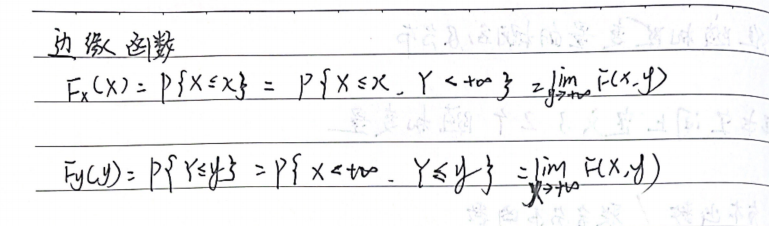 边缘函数
Fx(x) = P{X≤x} = P{X≤x, Y<+∞} = lim y→+∞ F(x,y)
Fy(y) = P{Y≤y} = P{X<+∞, Y≤y} = lim x→+∞ F(x,y)